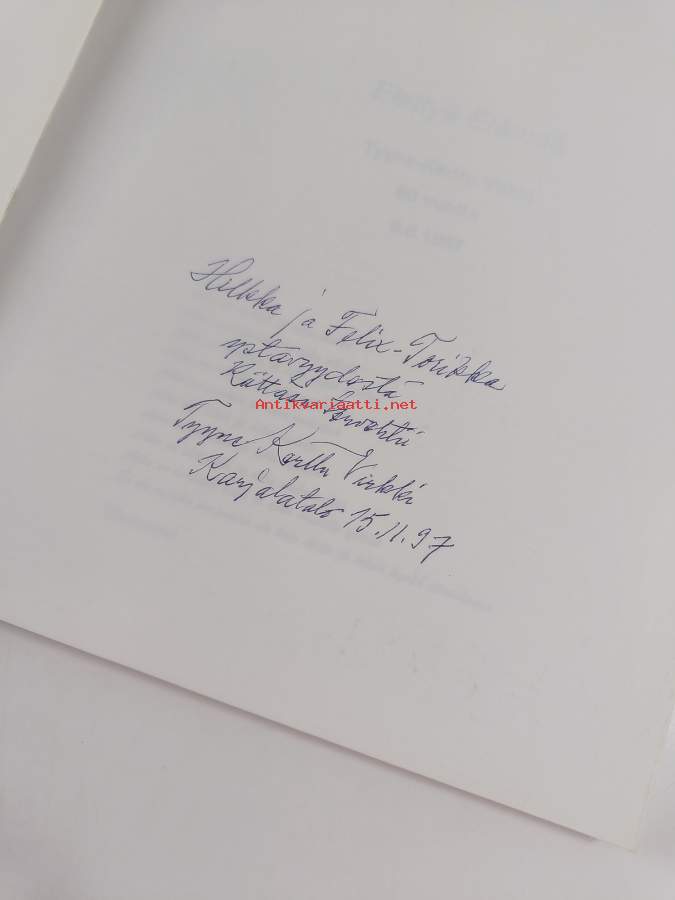 Hilkka ja Felix-Torikka
ystävyydestä
Kättäsi
Antikvariaatti.net
Tyyne Virkki
Karjalatalo 15.11.97